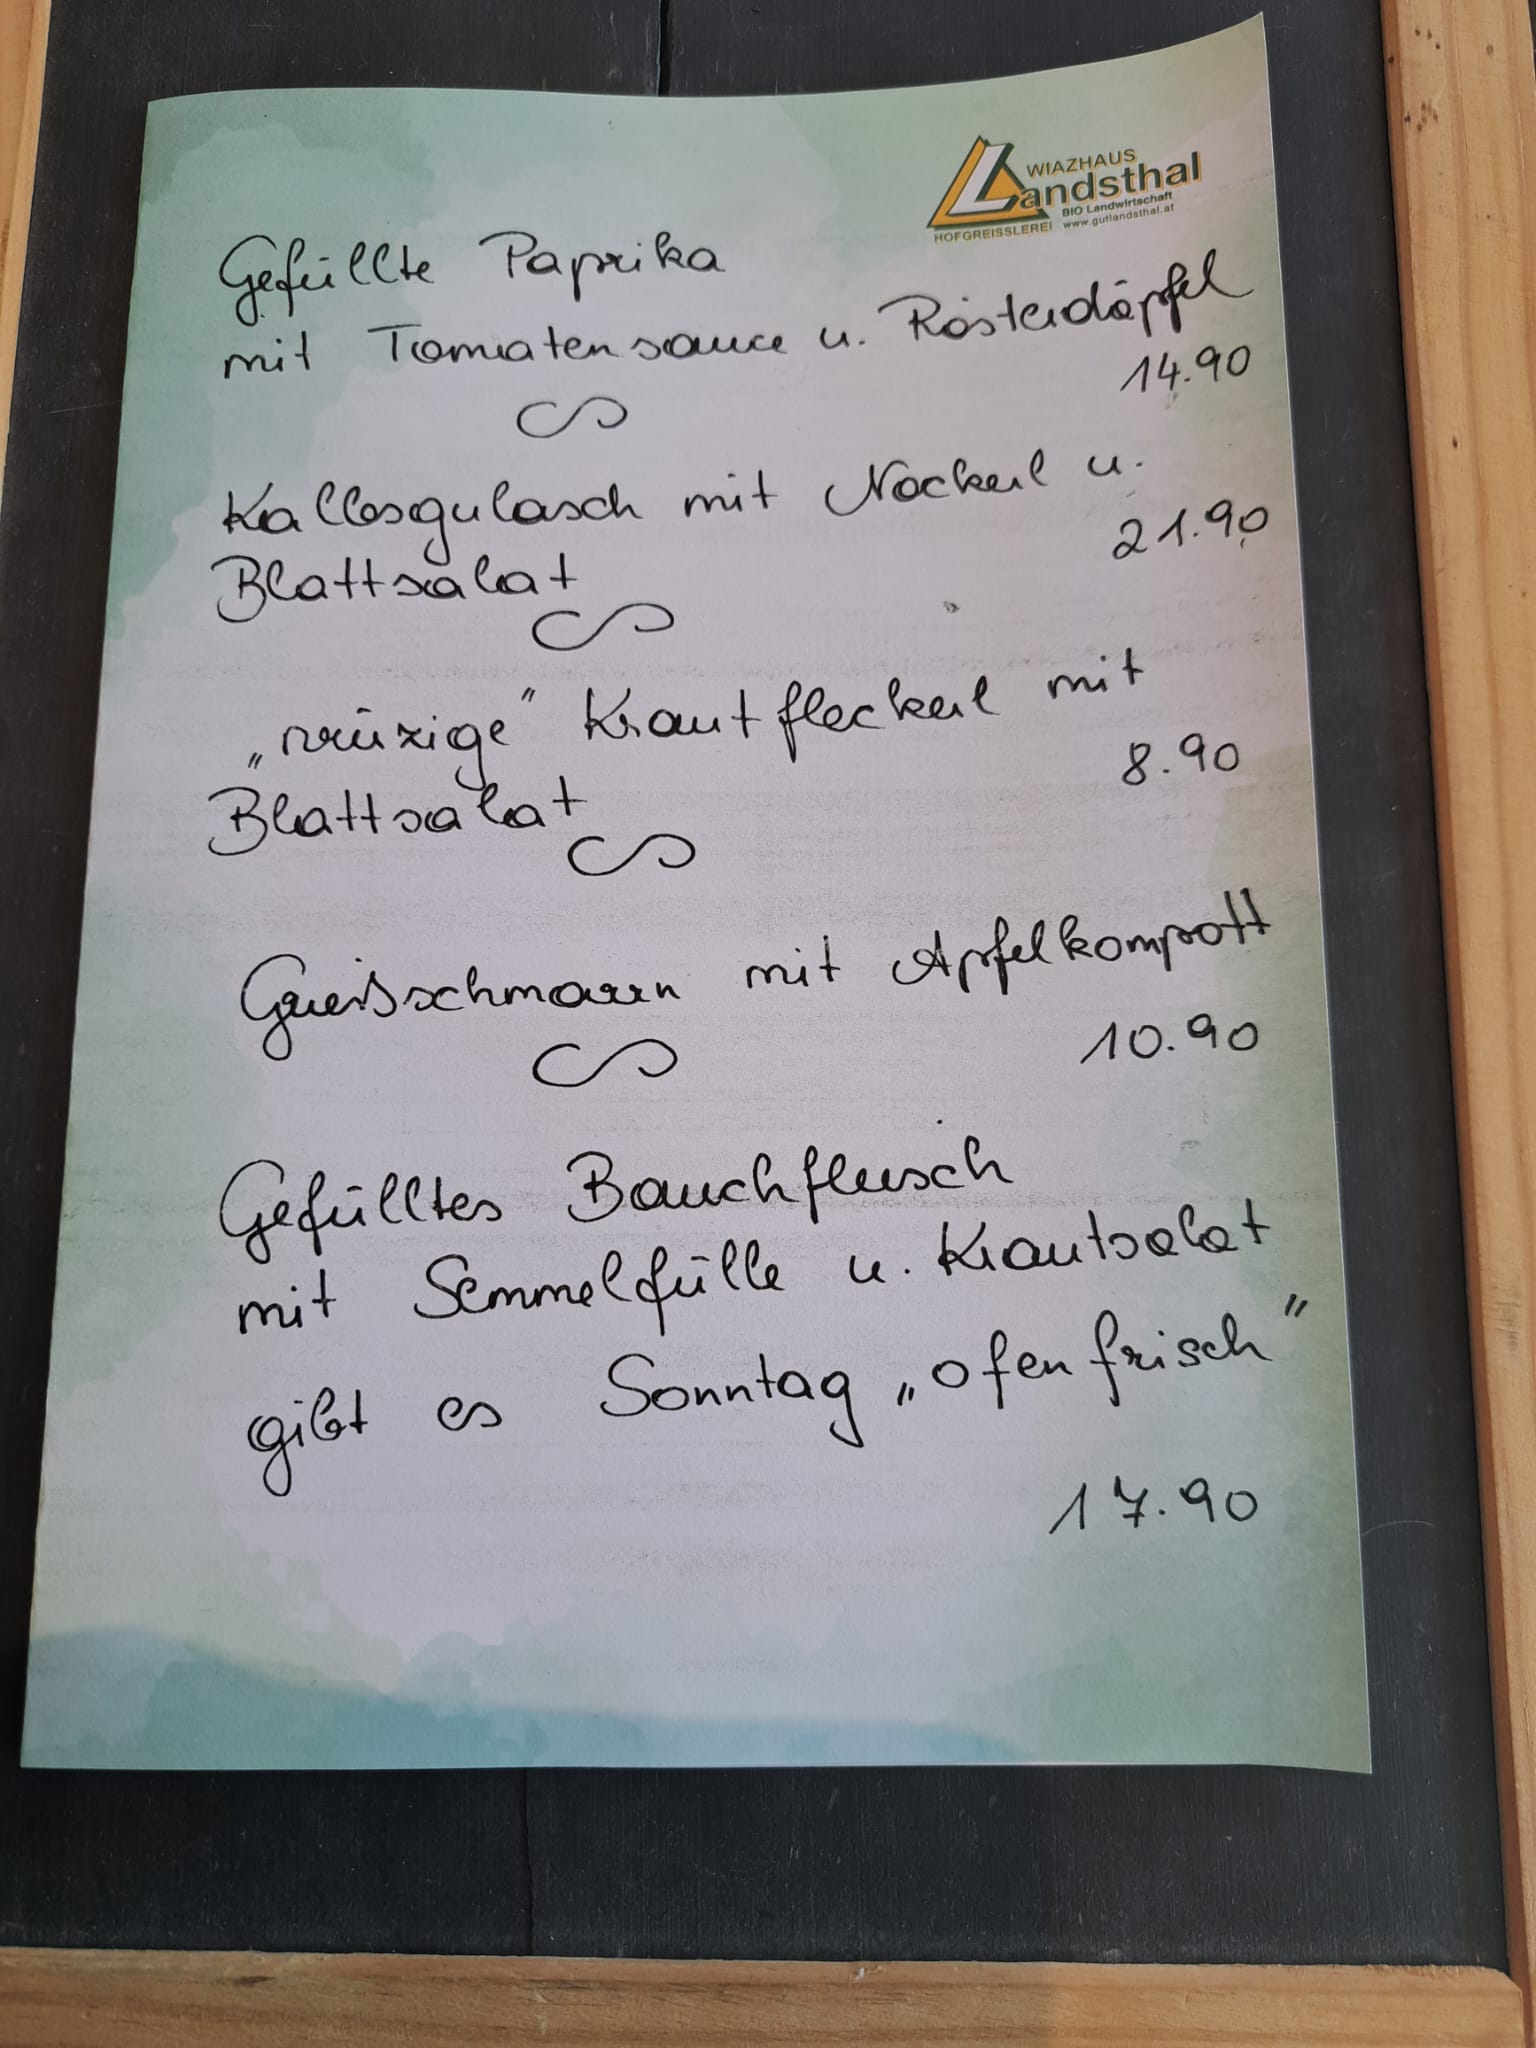 WIAZHAUS
Landsthal
BIO Landwirtschaft
HOFGREISSLEREI www.gutlandsthal.at
Gefüllte Paprika
mit Tomatensauce u. Rösterdäpfel
14.90
Kalbsgulasch mit Nockerl u.
Blattsalat 21.90
„würzige" Krautfleckerl mit
Blattsalat 8.90
Grießschmarrn mit Apfelkompott
10.90
Gefülltes Bauchfleisch
mit Semmelfülle u. Krautsalat
gibt es Sonntag „ofenfrisch"
17.90